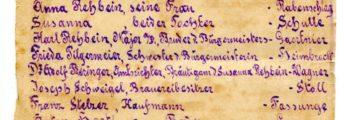 Anna Rehbein, seine Frau - Rabenschlag
Susanna, beider Tochter - Schulte
Karl Rehbein, Major i/R, Bruder d. Bürgermeisters - Gaertner
Frieda Pilgermeier, Schwester d. Bürgermeisters - Heimbrecht
Dr. Adolf Beringer, Amtsrichter, Bräutigam d. Susanna Rehbein - Wagner
Joseph Schweigel, Brauereibesitzer - Stoll
Franz Stelzer, Kaufmann - Fassunge